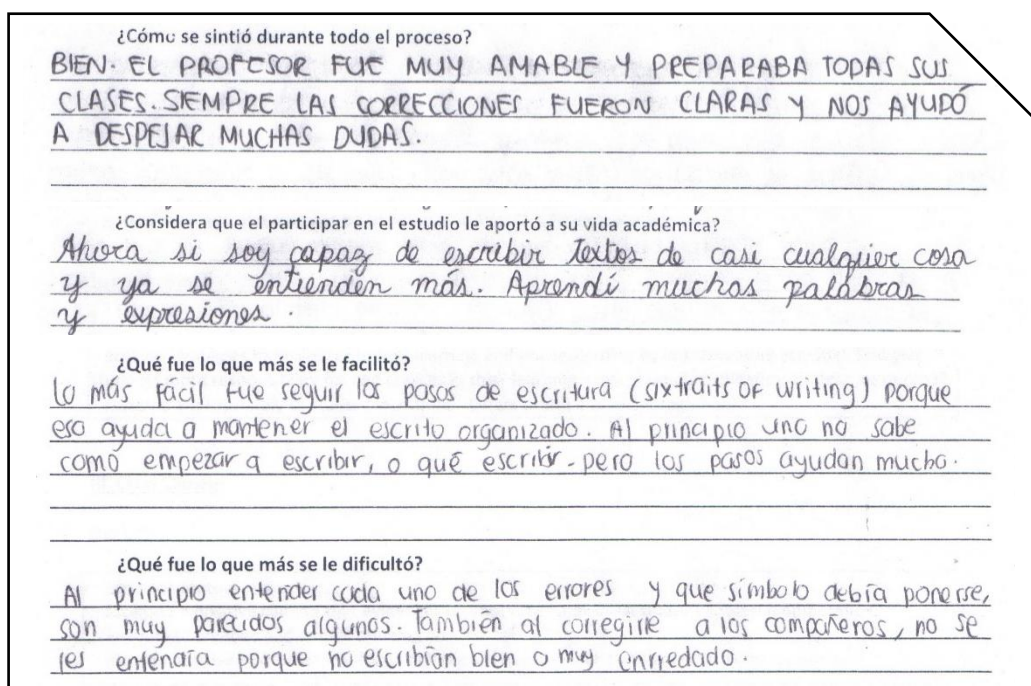 ¿Cómo se sintió durante todo el proceso?
BIEN. EL PROFESOR FUE MUY AMABLE Y PREPARABA TODAS SUS
CLASES. SIEMPRE LAS CORRECCIONES FUERON CLARAS Y NOS AYUDÓ
A DESPEJAR MUCHAS DUDAS.
¿Considera que el participar en el estudio le aportó a su vida académica?
Ahora si soy capaz de escribir textos de casi cualquier cosa
y ya se entienden más. Aprendí muchas palabras
y expresiones.
¿Qué fue lo que más se le facilitó?
Lo más fácil fue seguir los pasos de escritura (six traits of writing) porque
eso ayuda a mantener el escrito organizado. Al principio uno no sabe
como empezar a escribir, o qué escribir. pero los pasos ayudan mucho.
¿Qué fue lo que más se le dificultó?
Al principio entender cada uno de los errores y que símbolo debía ponerse,
son muy parecidos algunos. También al corregirle a los compañeros, no se
les entendía porque no escribían bien o muy enredado.